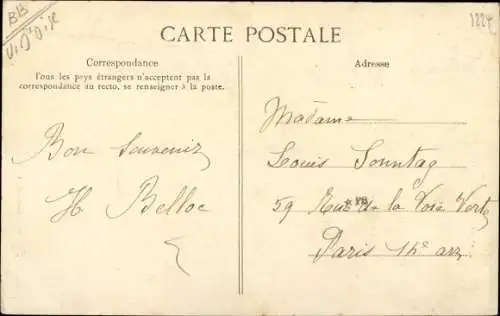 BB
1224
CARTE POSTALE
Correspondance
Tous les pays étrangers n'acceptent pas la
correspondance au recto, se renseigner à la poste.
Adresse
Bon Souvenir
H. Belloc
Madame
Louis Sonntag
59 Rue de la Voie Verte
Paris 14e arr.